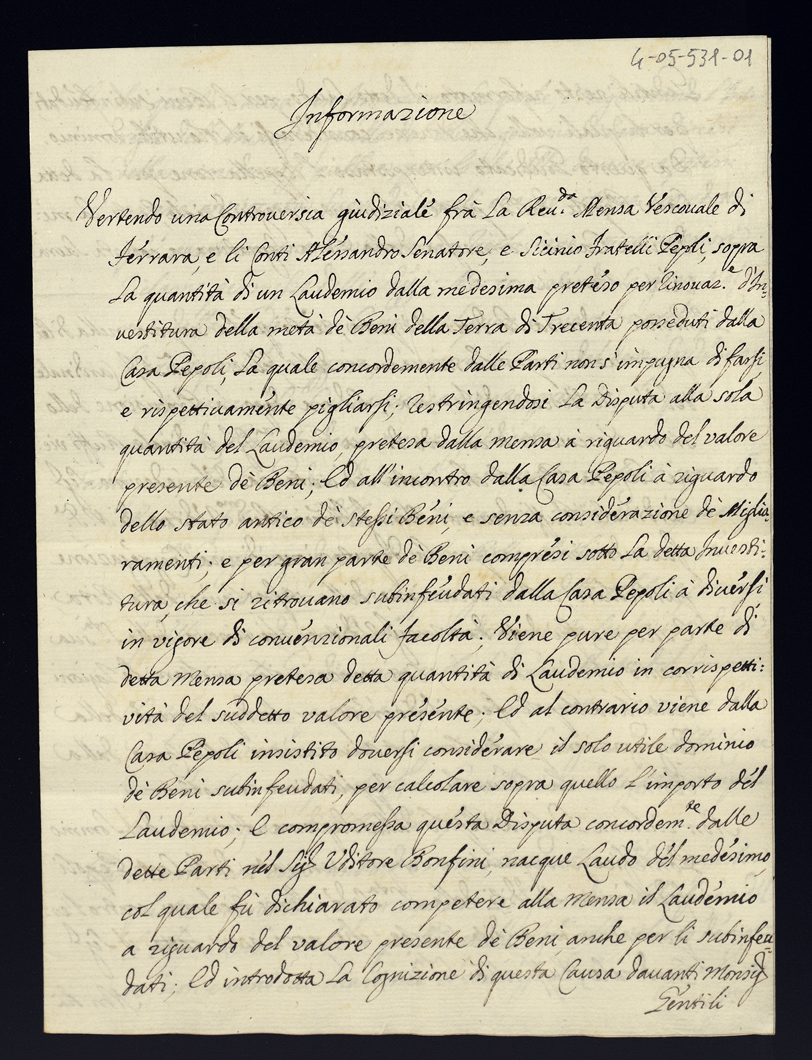 4-05-531-01
Informazione
Vertendo una Controversia giudiziale frà La Reu.da Mensa Vescouale di
Ferrara, e li Conti Alessandro Senatore, e Sicinio Fratelli Pepoli, sopra
La quantità di un Laudemio dalla medesima preteso per Rinouaz.e d'In=
uestitura della metà de Beni della Terra di Trecenta posseduti dalla
Casa Pepoli, La quale concordemente dalle Parti non s'impugna di farsi
e rispettiuamente pigliarsi; Restringendosi La Disputa alla sola
quantità del Laudemio, pretesa dalla Mensa à riguardo del valore
presente de Beni; Ed all'incontro dalla Casa Pepoli à riguardo
dello stato antico de stessi Beni, e senza considerazione de Miglio=
ramenti; e per gran parte de Beni compresi sotto La detta Inuesti=
tura, che si ritrouano subinfeudati dalla Casa Pepoli à diuersi
in vigore di conuenzionali facoltà; Viene pure per parte di
detta Mensa pretesa detta quantità di Laudemio in corrispetti=
vità del suddetto valore presente; Ed al contrario viene dalla
Casa Pepoli insistito douersi considerare il solo utile dominio
de Beni subinfeudati, per calcolare sopra quello L'importo del
Laudemio; E compromessa questa Disputa concordem.te dalle
dette Parti nel Sig.r Uditore Bonfini, nacque Laudo del medesimo,
col quale fù dichiarato competere alla Mensa il Laudemio
a riguardo del valore presente de Beni, anche per li subinfeu=
dati; Ed introdotta La Cognizione di questa Causa dauanti Monsig.r
Gentili